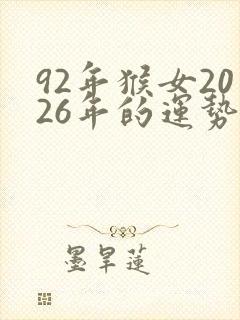 92年猴女20
26年的運勢
墨旱蓮